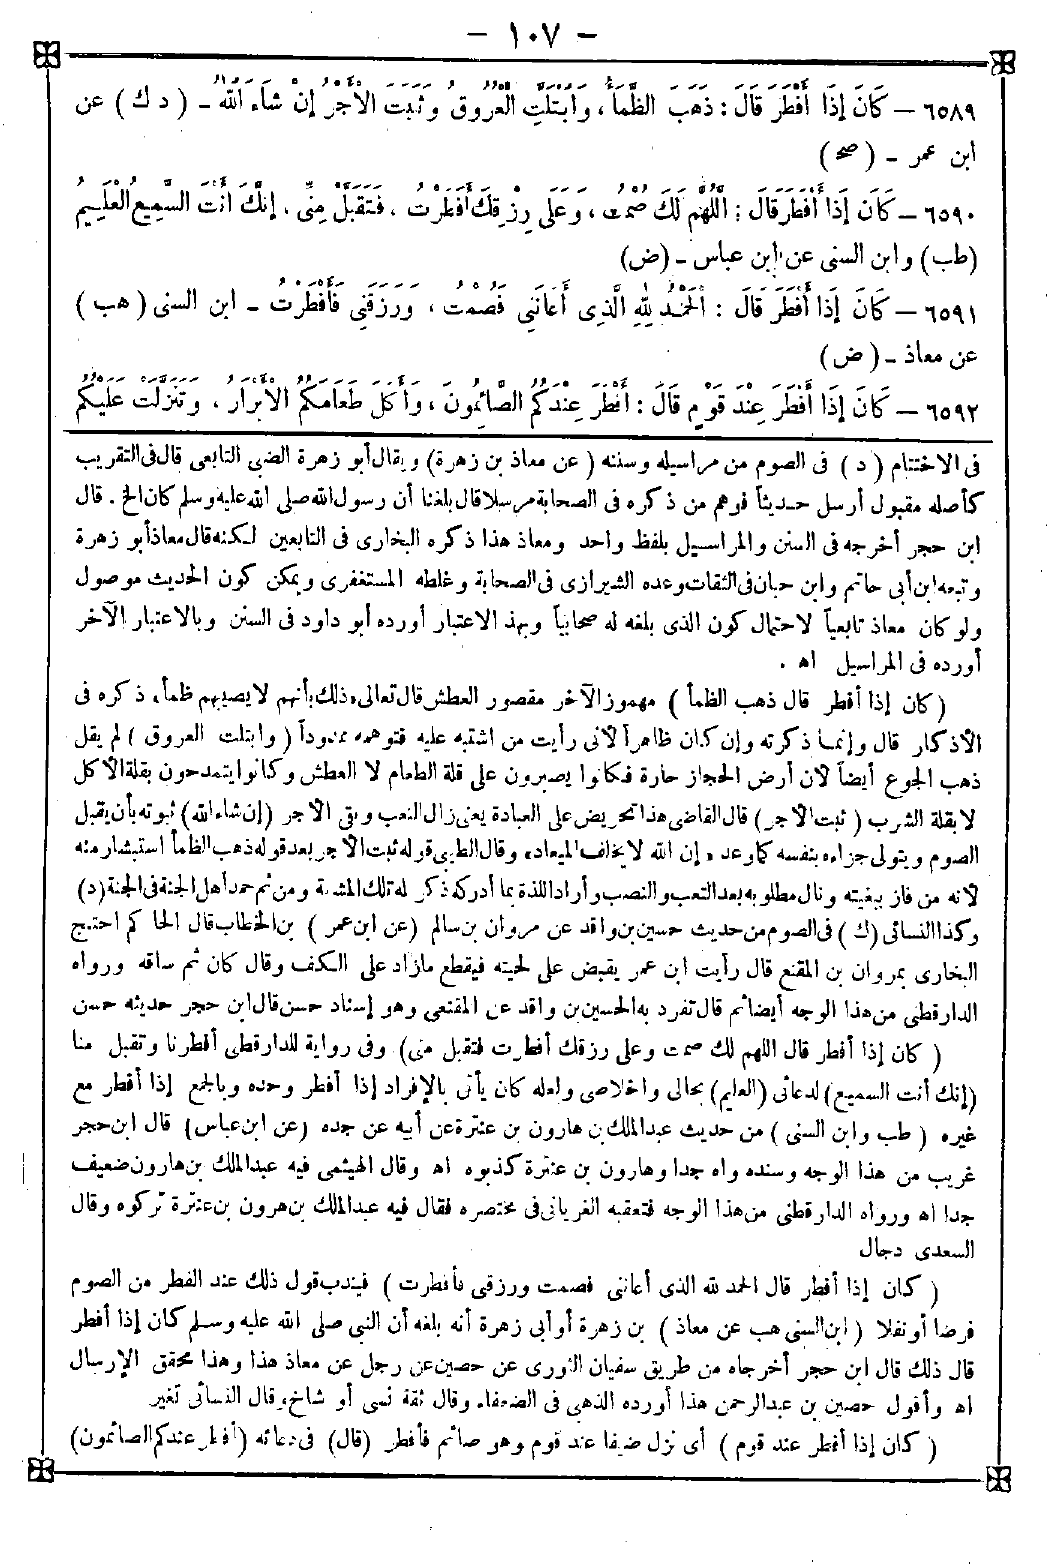 - ١٠٧ -
٦٥٨٩ - كَانَ إِذَا أَفْطَرَ قَالَ : ذَهَبَ الظَّمَأُ ، وَابْتَلَّتِ الْعُرُوقُ وَثَبَتَ الْأَجْرُ إِنْ شَاءَ اللهُ - ( د ك ) عن
ابن عمر - ( صح )
٦٥٩٠ - كَانَ إِذَا أَفْطَرَ قَالَ : اللّٰهُمَّ لَكَ صُمْتُ ، وَعَلَى رِزْقِكَ أَفْطَرْتُ ، فَتَقَبَّلْ مِنِّي ، إِنَّكَ أَنْتَ السَّمِيعُ الْعَلِيمُ
(طب) وابن السنى عن ابن عباس - (ض)
٦٥٩١ - كَانَ إِذَا أَفْطَرَ قَالَ : اَلْحَمْدُ لِلهِ الَّذِي أَعَانَنِي فَصُمْتُ ، وَرَزَقَنِي فَأَفْطَرْتُ - ابن السنى ( هب )
عن معاذ - ( ض )
٦٥٩٢ - كَانَ إِذَا أَفْطَرَ عِنْدَ قَوْمٍ قَالَ : أَفْطَرَ عِنْدَكُمُ الصَّائِمُونَ ، وَأَكَلَ طَعَامَكُمُ الْأَبْرَارُ ، وَتَنَزَّلَتْ عَلَيْكُمُ
فى الاختتام ( د ) فى الصوم من مراسيله وسننه ( عن معاذ بن زهرة) ويقال أبو زهرة الضبى التابعى قال فى التقريب
كأصله مقبول أرسل حديثاً فوهم من ذكره فى الصحابة مرسلا قال بلغنا أن رسول الله صلى الله عليه وسلم كان الخ . قال
ابن حجر أخرجه فى السنن والمراسيل بلفظ واحد ومعاذ هذا ذكره البخارى فى التابعين لكنه قال معاذ أبو زهرة
وتبعه ابن أبى حاتم وابن حبان فى الثقات وعده الشيرازى فى الصحابة وغلطه المستغفرى ويمكن كون الحديث موصول
ولو كان معاذ تابعياً لاحتمال كون الذى بلغه له صحابياً وبهذ الاعتبار أورده أبو داود فى السنن وبالاعتبار الآخر
أورده فى المراسيل اه .
( كان إذا أفطر قال ذهب الظمأ ) مهموز الآخر مقصور العطش قال تعالى « ذلك بأنهم لا يصيبهم ظمأ » ذكره فى
الأذكار قال وإنما ذكرته وإن كان ظاهراً لأنى رأيت من اشتبه عليه فتوهمه ممدوداً ( وابتلت العروق ) لم يقل
ذهب الجوع أيضاً لأن أرض الحجاز حارة فكانوا يصبرون على قلة الطعام لا العطش وكانوا يتمدحون بقلة الأكل
لا بقلة الشرب ( ثبت الأجر ) قال القاضى هذا تحريض على العبادة يعنى زال التعب وبقى الأجر (إن شاء الله) ثبوته بأن يقبل
الصوم ويتولى جزاءه بنفسه كما وعد « إن الله لا يخلف الميعاد » وقال الطيبى قوله ثبت الأجر بعد قوله ذهب الظمأ استبشار منه
لأنه من فاز ببغيته ونال مطلوبه بعد التعب والنصب وأراد اللذة بما أدركه ذكر له تلك المشقة ومن ثم حمد أهل الجنة فى الجنة (د)
وكذا النسائى (ك ) فى الصوم من حديث حسين بن واقد عن مروان بن سالم (عن ابن عمر ) بن الخطاب قال الحاكم احتج
البخارى بمروان بن المقنع قال رأيت ابن عمر يقبض على لحيته فيقطع ما زاد على الكف وقال كان ثم ساقه ورواه
الدارقطنى من هذا الوجه أيضا ثم قال تفرد به الحسين بن واقد عن المقنعى وهو إسناد حسن قال ابن حجر حديثه حسن
( كان إذا أفطر قال اللهم لك صمت وعلى رزقك أفطرت فتقبل منى) وفى رواية للدارقطنى أفطرنا وتقبل منا
(إنك أنت السميع) لدعائى (العليم) بحالى وإخلاصى ولعله كان يأتى بالإفراد إذا أفطر وحده وبالجمع إذا أفطر مع
غيره ( طب وابن السنى ) من حديث عبد الملك بن هارون بن عنترة عن أبيه عن جده (عن ابن عباس) قال ابن حجر
غريب من هذا الوجه وسنده واه جدا وهارون بن عنترة كذبوه اه وقال الهيثمى فيه عبد الملك بن هارون ضعيف
جدا اه ورواه الدارقطنى من هذا الوجه فتعقبه الغريانى فى مختصره فقال فيه عبد الملك بن هرون بن عنترة تركوه وقال
السعدى دجال
( كان إذا أفطر قال الحمد لله الذى أعاننى فصمت ورزقنى فأفطرت ) فيندب قول ذلك عند الفطر من الصوم
فرضا أو نفلا ( ابن السنى هب عن معاذ ) بن زهرة أو أبى زهرة أنه بلغه أن النبى صلى الله عليه وسلم كان إذا أفطر
قال ذلك قال ابن حجر أخرجاه من طريق سفيان الثورى عن حصين عن رجل عن معاذ هذا وهذا محقق الإرسال
اه وأقول حصين بن عبد الرحمن هذا أورده الذهبى فى الضعفاء وقال ثقة نسى أو شاخ وقال النسائى تغير
( كان إذا أفطر عند قوم ) أى نزل ضيفا عند قوم وهو صائم فأفطر (قال) فى دعائه (أفطر عندكم الصائمون)